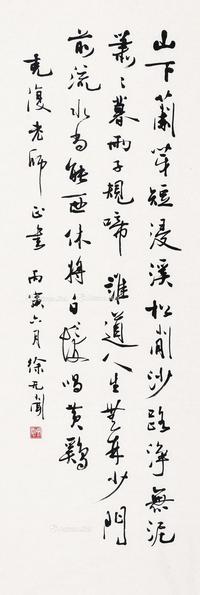 山下蘭芽短浸溪松間沙路淨無泥
蕭〻暮雨子規啼誰道人生無再少門
前流水尚能西休將白髮唱黃雞
克復老師正書丙寅六月徐无聞